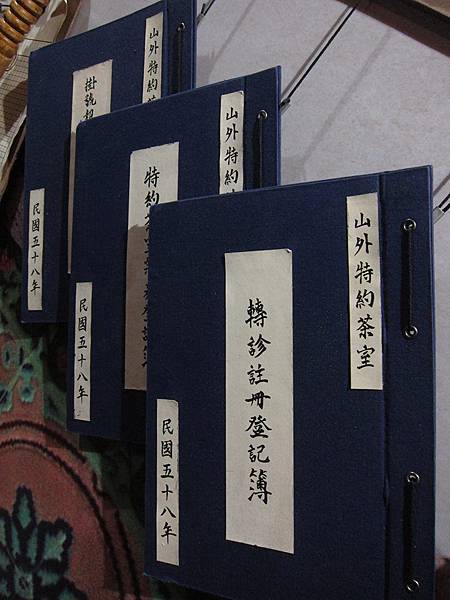 山外特約茶室
轉診註冊登記簿
民國五十八年
山外特約
特約茶室
民國五十八年
山外特約
掛號
民國五十八年